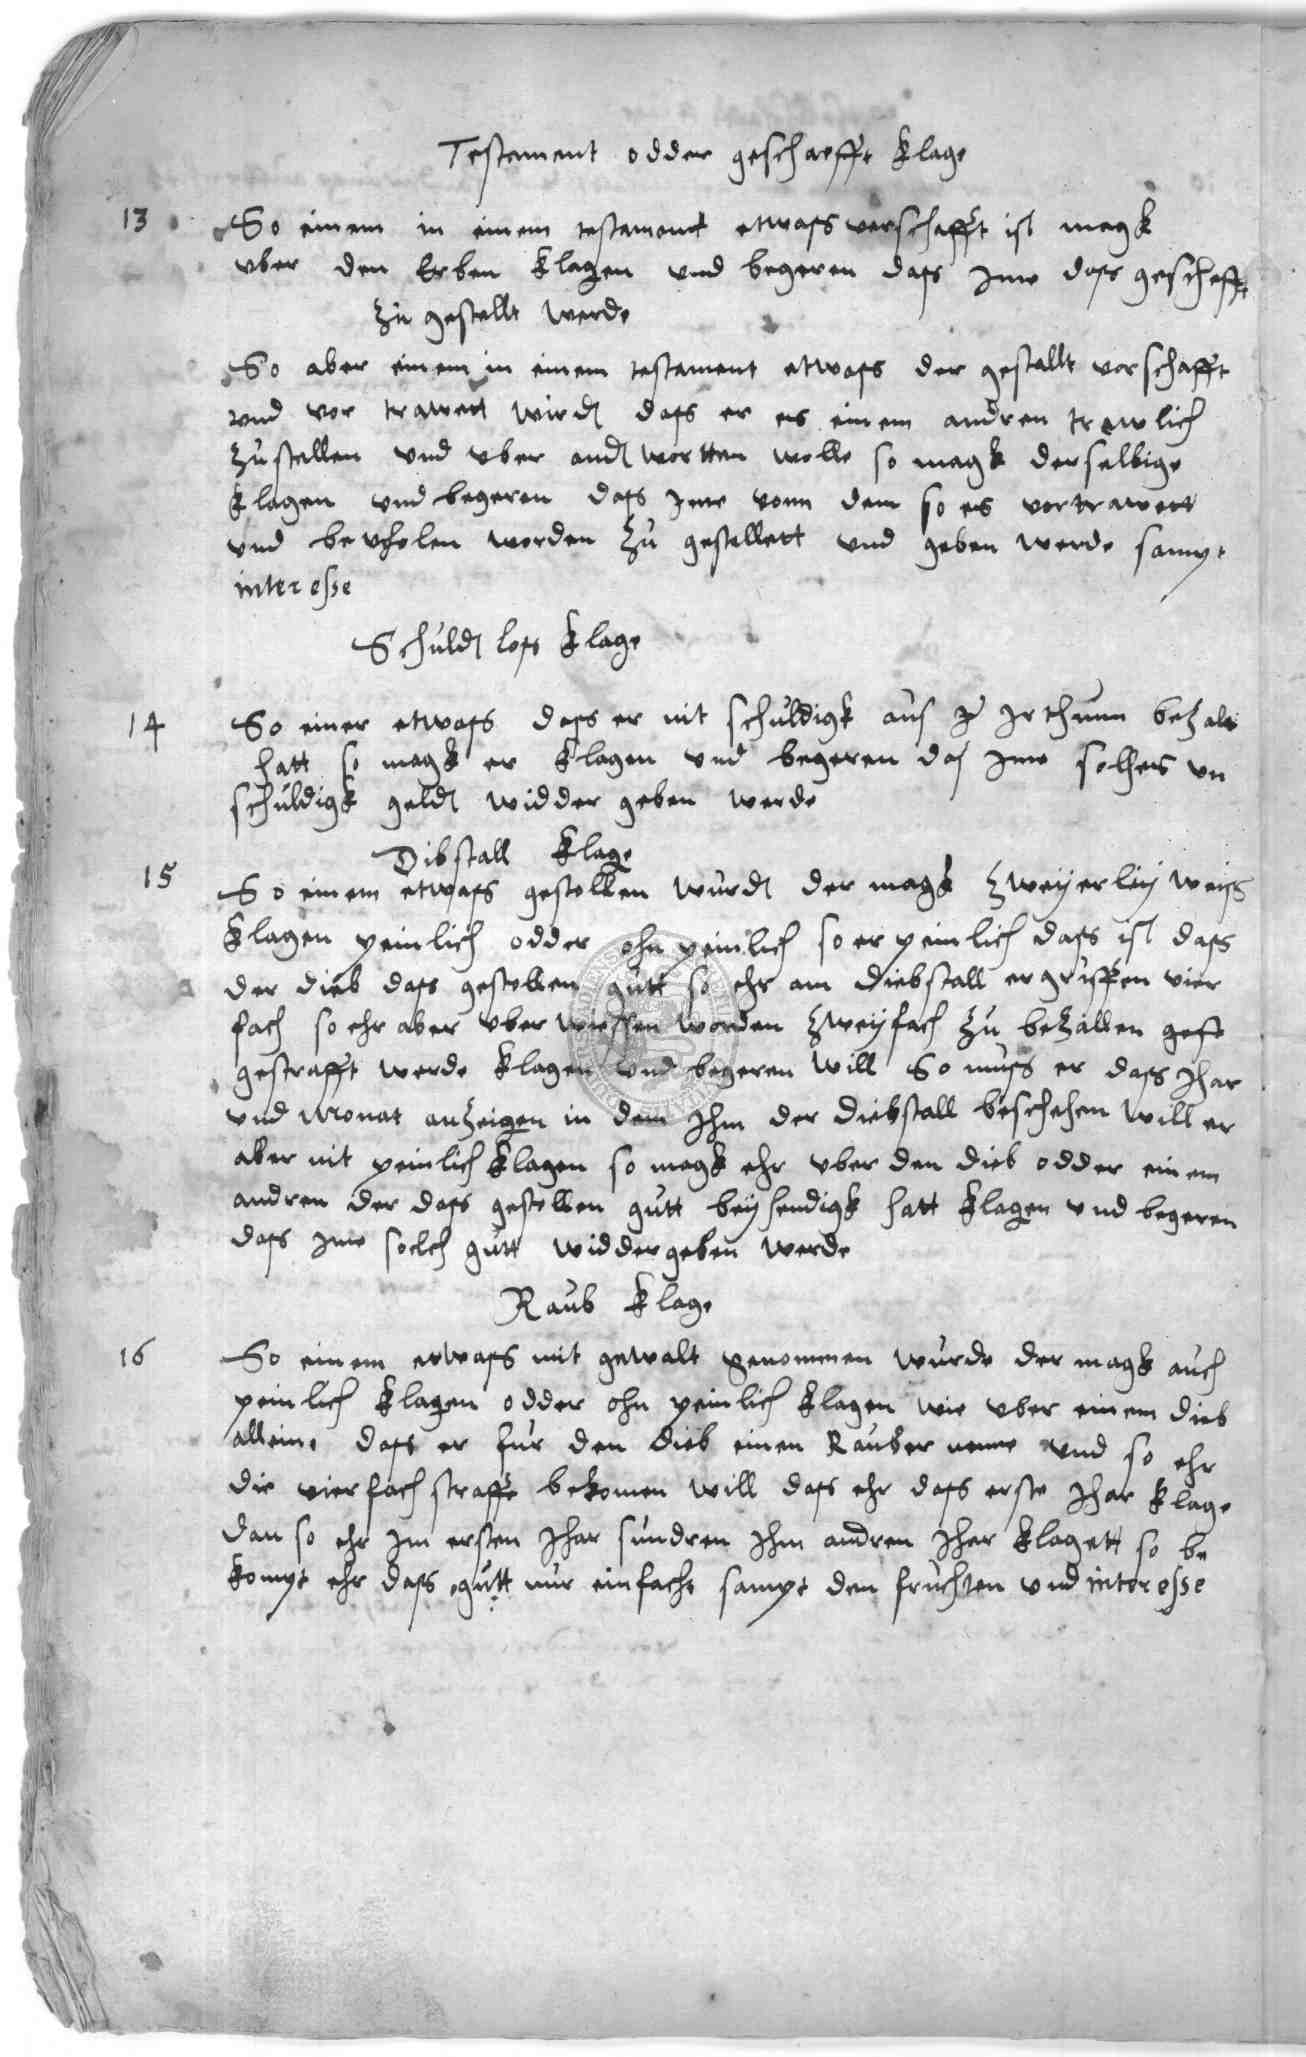 Testament odder geschaefft klage
13 So einem in einem testament etwass verschafft ist magk
vber den Erben klagen vnd begeren dass Ime dass geschefft
zu gestellt werde
So aber einem in einem testament etwass der gestallt vorschafft
vnd vor trawett wirdt dass er es einem andren trewlich
zustellen vnd vber andtwortten wolle so magk derselbige
klagen vnd begeren dass Ime vonn dem so es vortrawett
vnd bevholen worden zu gestellett vnd geben werde sampt
interesse
Schuldt loss klage
14 So einer etwass dass er nit schuldigk aus Irthumm bezalt
hatt so magk er klagen vnd begeren das Ime solhes vn
schuldigk geldt widder geben werde
Dibstall klage
15 So einem etwass gestollen wurdt der magk zweyerley weiss
klagen peinlich odder ohn peinlich so er peinlich dass ist dass
der dieb dass gestollen gutt so ehr am diebstall ergriffen vier
fach so ehr aber vber wiessen worden zweyfach zu bezallen
gestrafft werde klagen vnd begeren will So muss er dass Jhar
vnd Monat anzeigen in dem Ihm der diebstall beschehen will er
aber nit peinlich klagen so magk ehr vber den dieb odder einem
andren der dass gestollen gutt beyhendigk hatt klagen vnd begeren
dass Ime solch gutt widdergeben werde
Raub klage
16 So einem etwass mit gewalt genommen wurde der magk auch
peinlich klagen odder ohn peinlich klagen wie vber einem dieb
alleine dass er fur den dieb einen Rauber nenne vnd so ehr
die vierfach straffe bekomen will dass ehr dass erste Jhar klage
dan so ehr Im ersten Jhar sundren Ihm andren Jhar klagett so be
kompt ehr dass gutt nur einfache sampt den fruchten vnd interesse